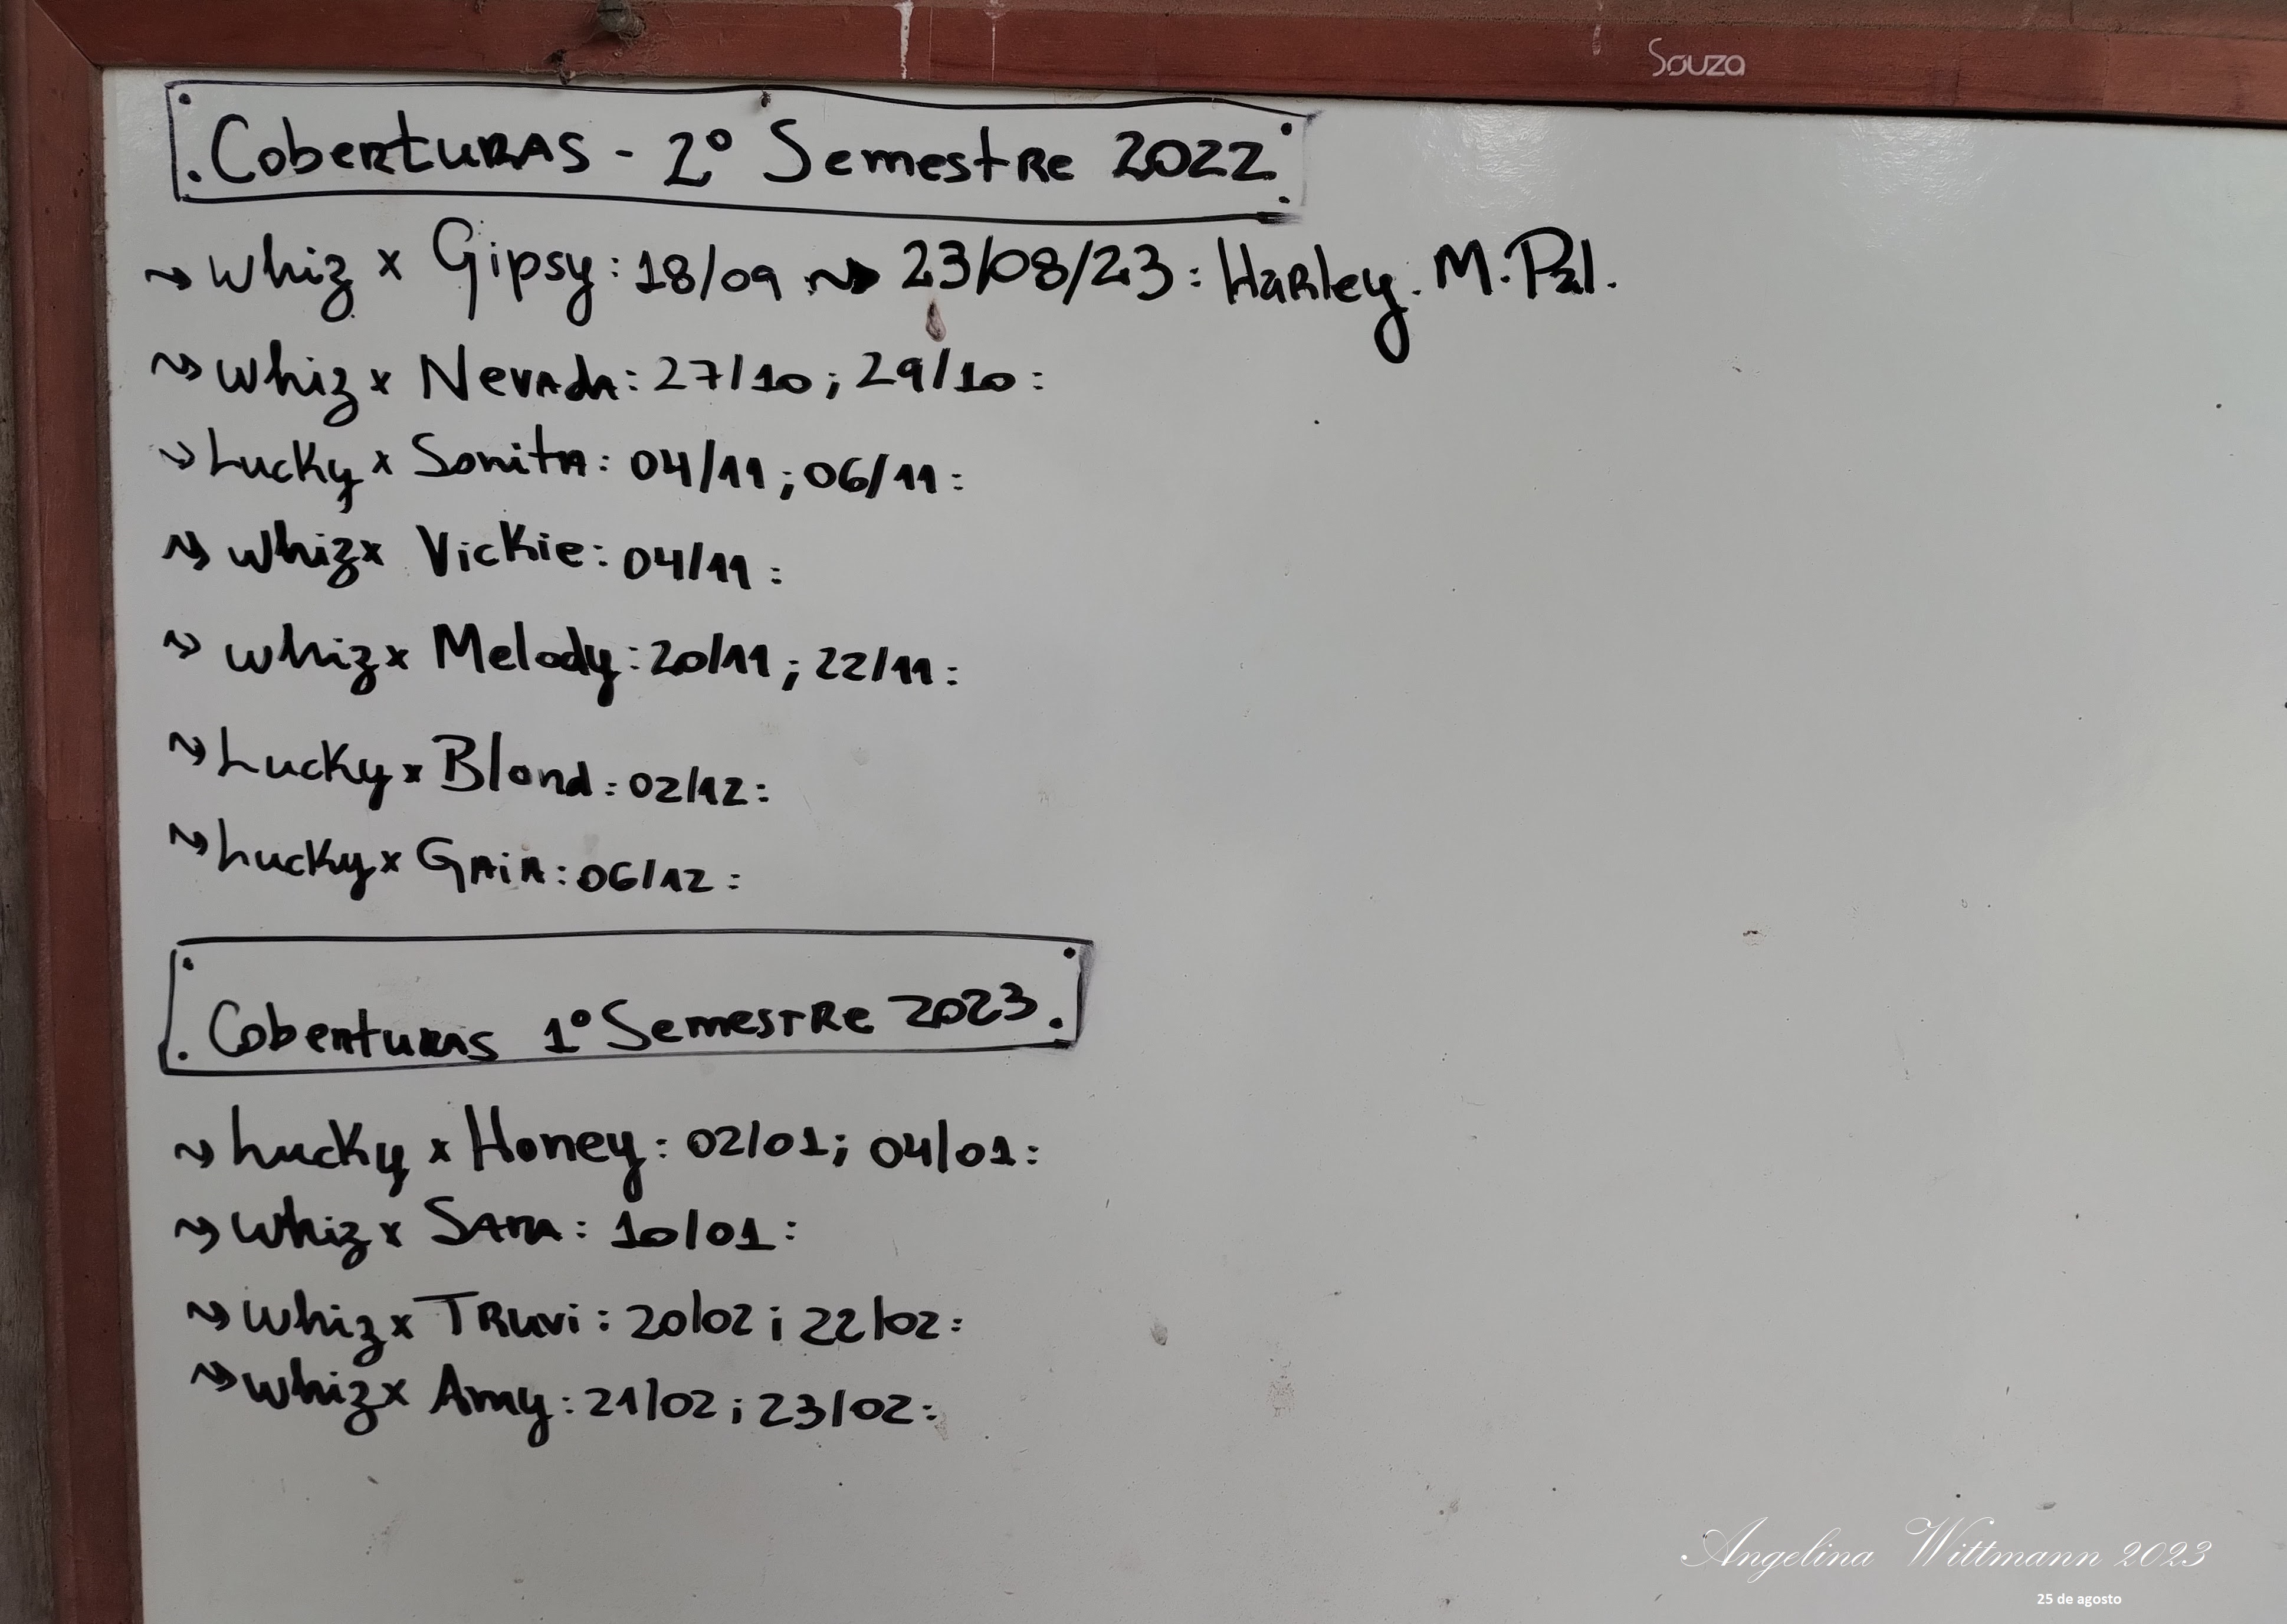 Souza
Coberturas - 2º Semestre 2022.
Whiz x Gipsy: 18/09 23/08/23: Harley. M. Pal.
Whiz x Nevada: 27/10; 29/10:
Lucky x Sonita: 04/11; 06/11:
Whiz x Vickie: 04/11:
Whiz x Melody: 20/11; 22/11:
Lucky x Blond: 02/12:
Lucky x Gaia: 06/12:
Coberturas 1º Semestre 2023.
Lucky x Honey: 02/01; 04/01:
Whiz x Sara: 10/01:
Whiz x Truvi: 20/02; 22/02:
Whiz x Amy: 21/02; 23/02:
Angelina Wittmann 2023
25 de agosto